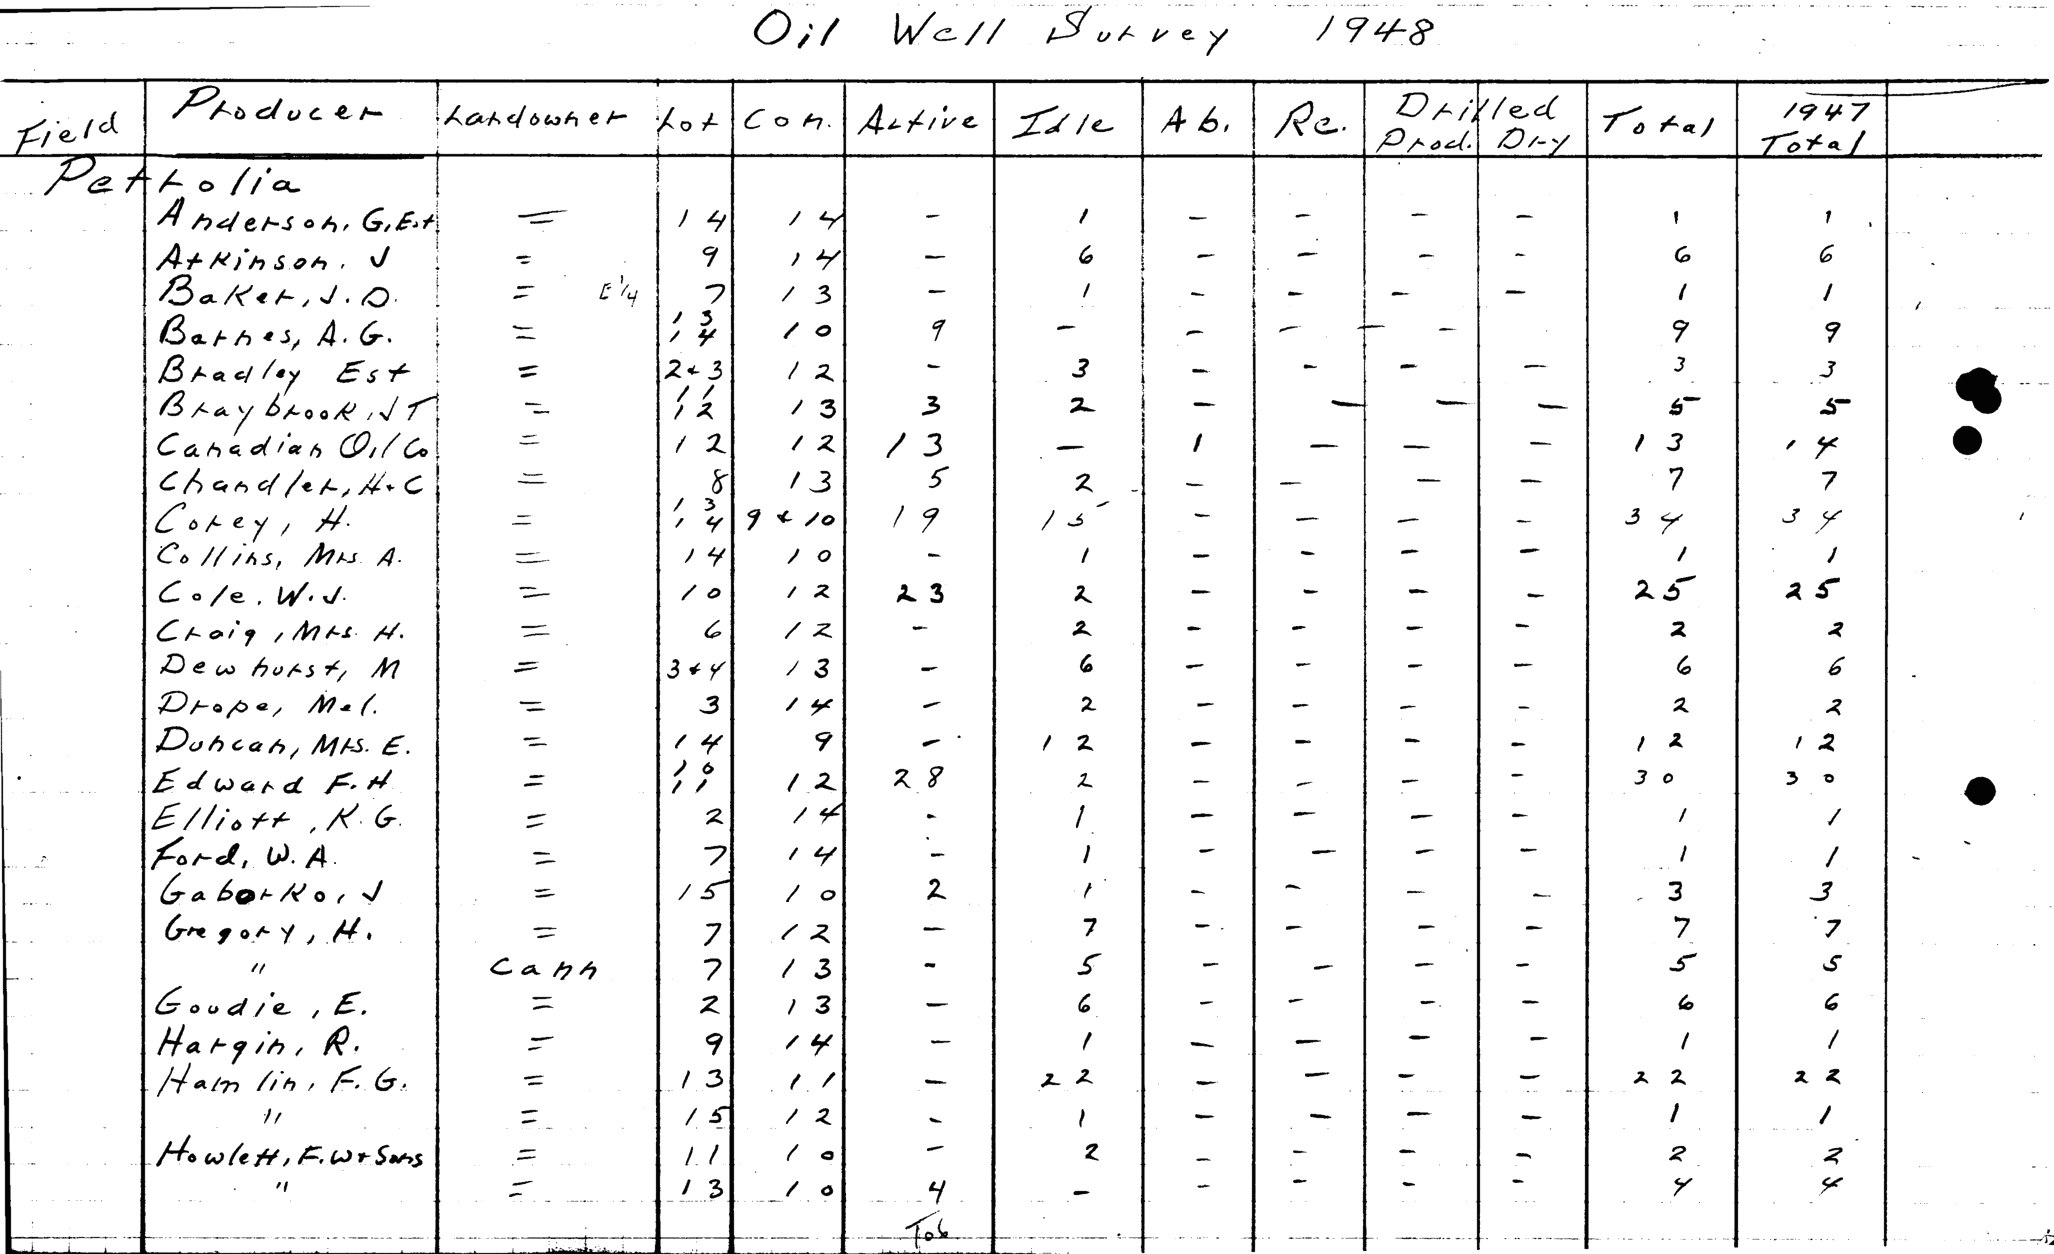 Oil Well Survey 1948
Field Producer Landowner Lot Con. Active Idle Ab. Re. Drilled Prod. Dry Total 1947 Total
Petrolia
Anderson, G, Est = 14 14 - 1 - - - - 1 1
Atkinson, J = 9 14 - 6 - - - - 6 6
Baker, J. D. = E 1/4 7 13 - 1 - - - - 1 1
Barnes, A. G. = 13 14 10 9 - - - - - 9 9
Bradley Est = 2+3 12 - 3 - - - - 3 3
Braybrook, J T = 11 12 13 3 2 - - - - 5 5
Canadian Oil Co = 12 12 13 - 1 - - - 13 14
Chandler, H+C = 8 13 5 2 - - - - 7 7
Corey, H. = 13 14 9+10 19 15 - - - - 34 34
Collins, Mrs. A. = 14 10 - 1 - - - - 1 1
Cole, W.J. = 10 12 23 2 - - - - 25 25
Craig, Mrs. H. = 6 12 - 2 - - - - 2 2
Dewhurst, M = 3+4 13 - 6 - - - - 6 6
Drope, Mel. = 3 14 - 2 - - - - 2 2
Duncan, Mrs. E. = 14 9 - 12 - - - - 12 12
Edward F. H = 10 11 12 28 2 - - - - 30 30
Elliott, K. G. = 2 14 - 1 - - - - 1 1
Ford, W. A. = 7 14 - 1 - - - - 1 1
Gaborko, J = 15 10 2 1 - - - - 3 3
Gregory, H. = 7 12 - 7 - - - - 7 7
" Cann 7 13 - 5 - - - - 5 5
Goudie, E. = 2 13 - 6 - - - - 6 6
Hargin, R. = 9 14 - 1 - - - - 1 1
Hamlin, F. G. = 13 11 - 22 - - - - 22 22
" = 15 12 - 1 - - - - 1 1
Howlett, F.W+Sons = 11 10 - 2 - - - - 2 2
" = 13 10 4 - - - - - 4 4